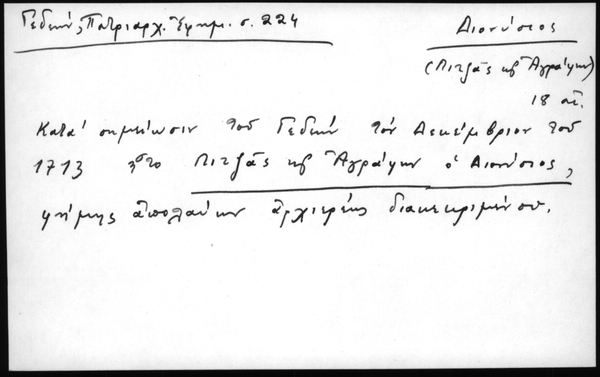 Γεδεών, Πατριαρχ. Ἐφημ. σ. 224
Διονύσιος
(Λιτζᾶς κ᾽ Ἀγράφων)
18 αἰ.
Κατά σημείωσιν τοῦ Γεδεών τόν Δεκέμβριον τοῦ
1713 ἦτο Λιτζᾶς κ᾽ Ἀγράφων ὁ Διονύσιος,
φήμης ἀπολαύων ἀρχιερέως διακεκριμένου.